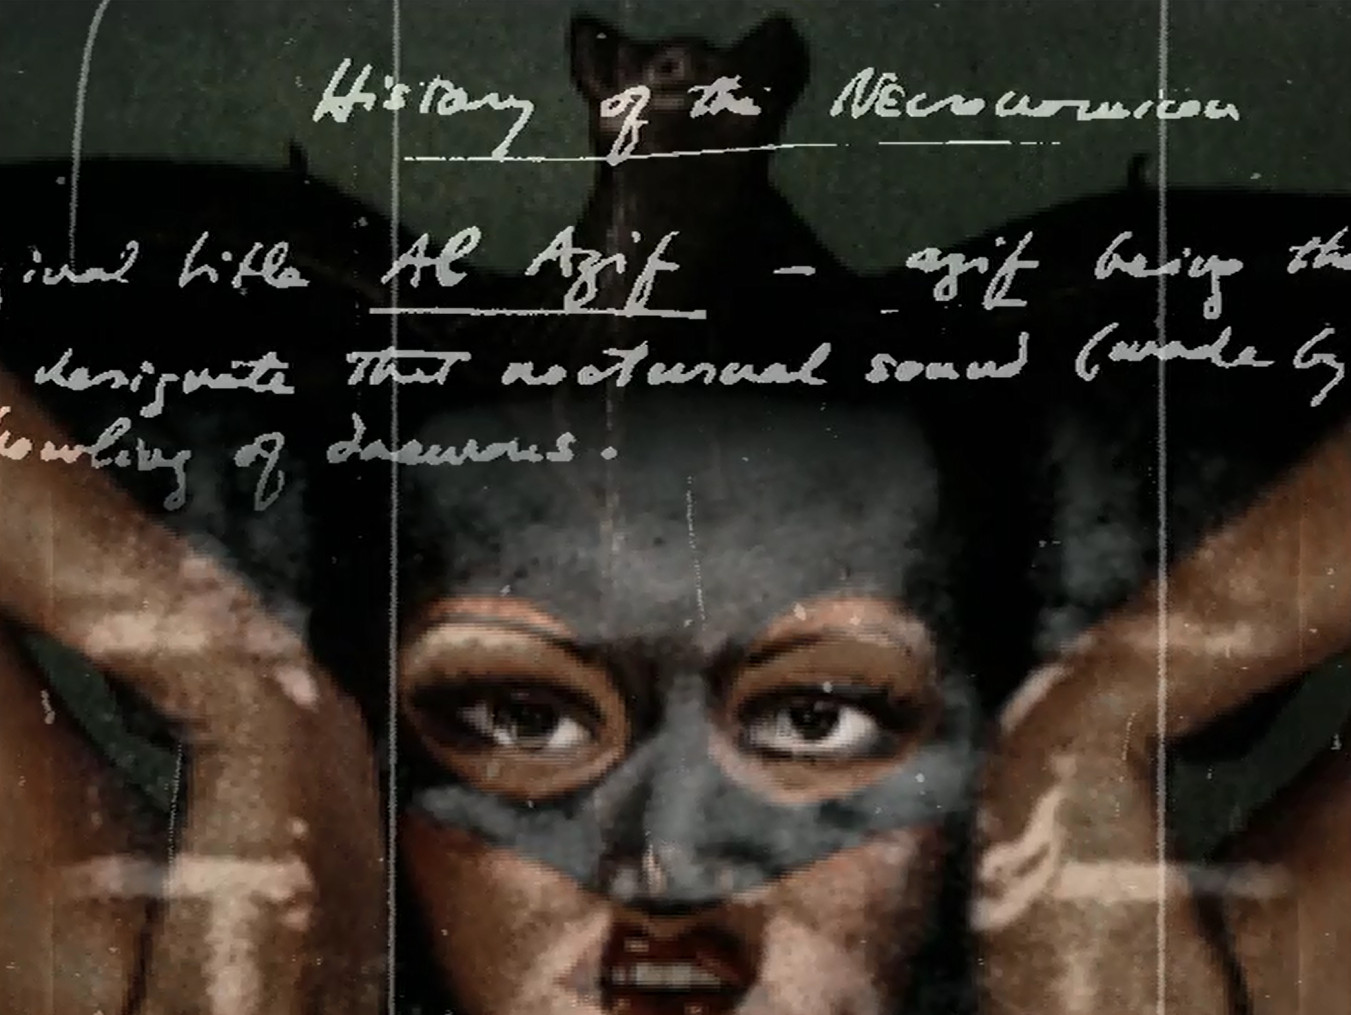 History of the Necronomicon
inal title Al Azif — azif being the
designate that nocturnal sound (made by
howling of daemons.